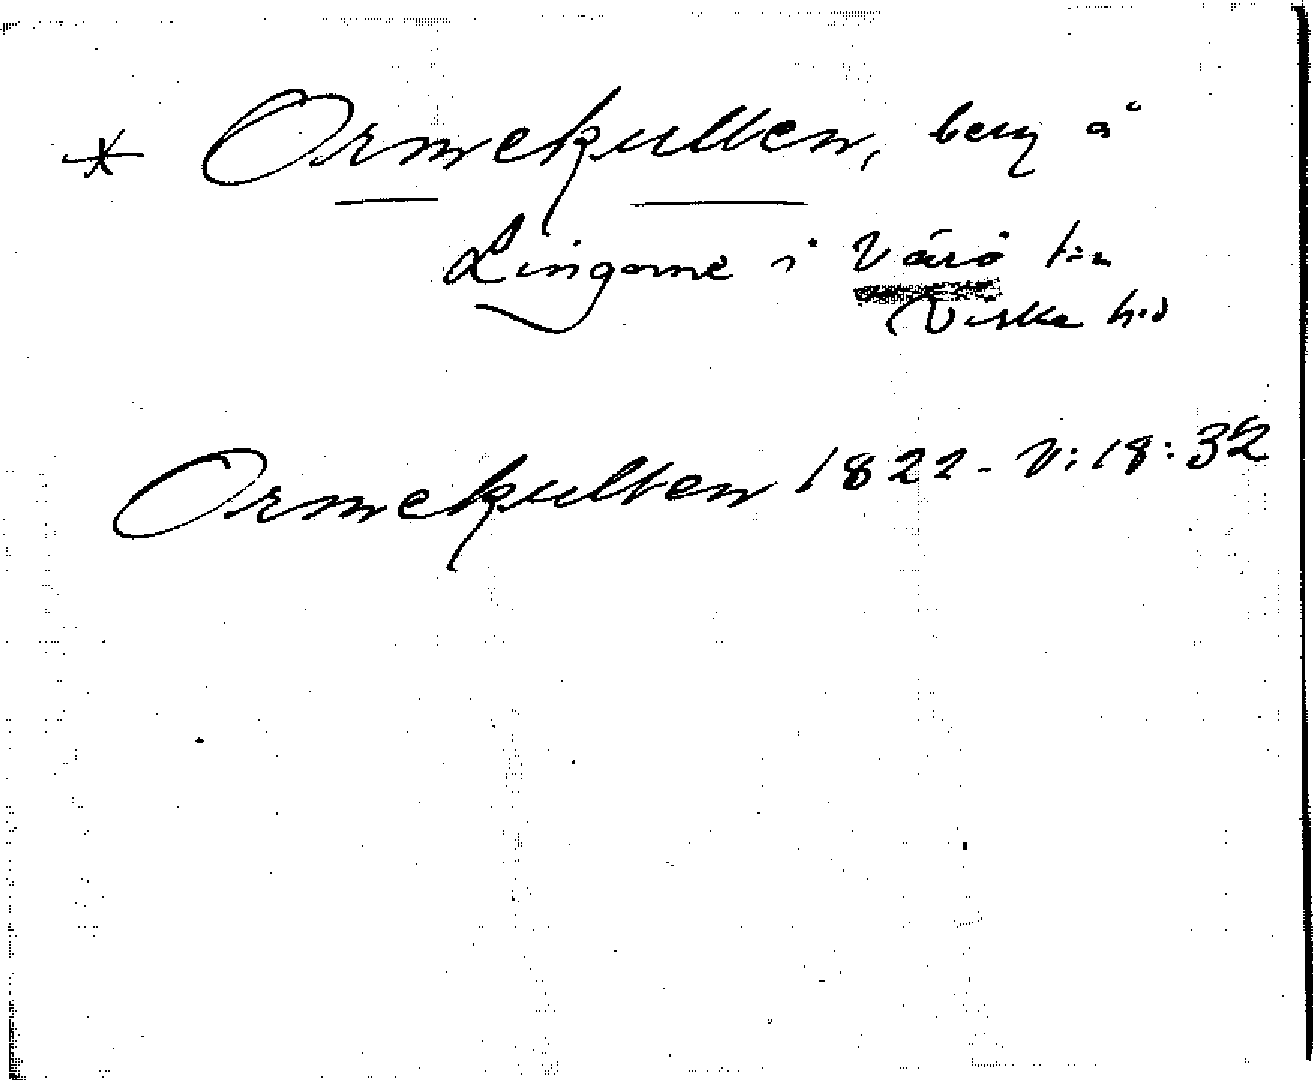 * Ormekullen, berg å
Lingome i Värö sn
Viske hd
Ormekullen 1822 - V:18:32